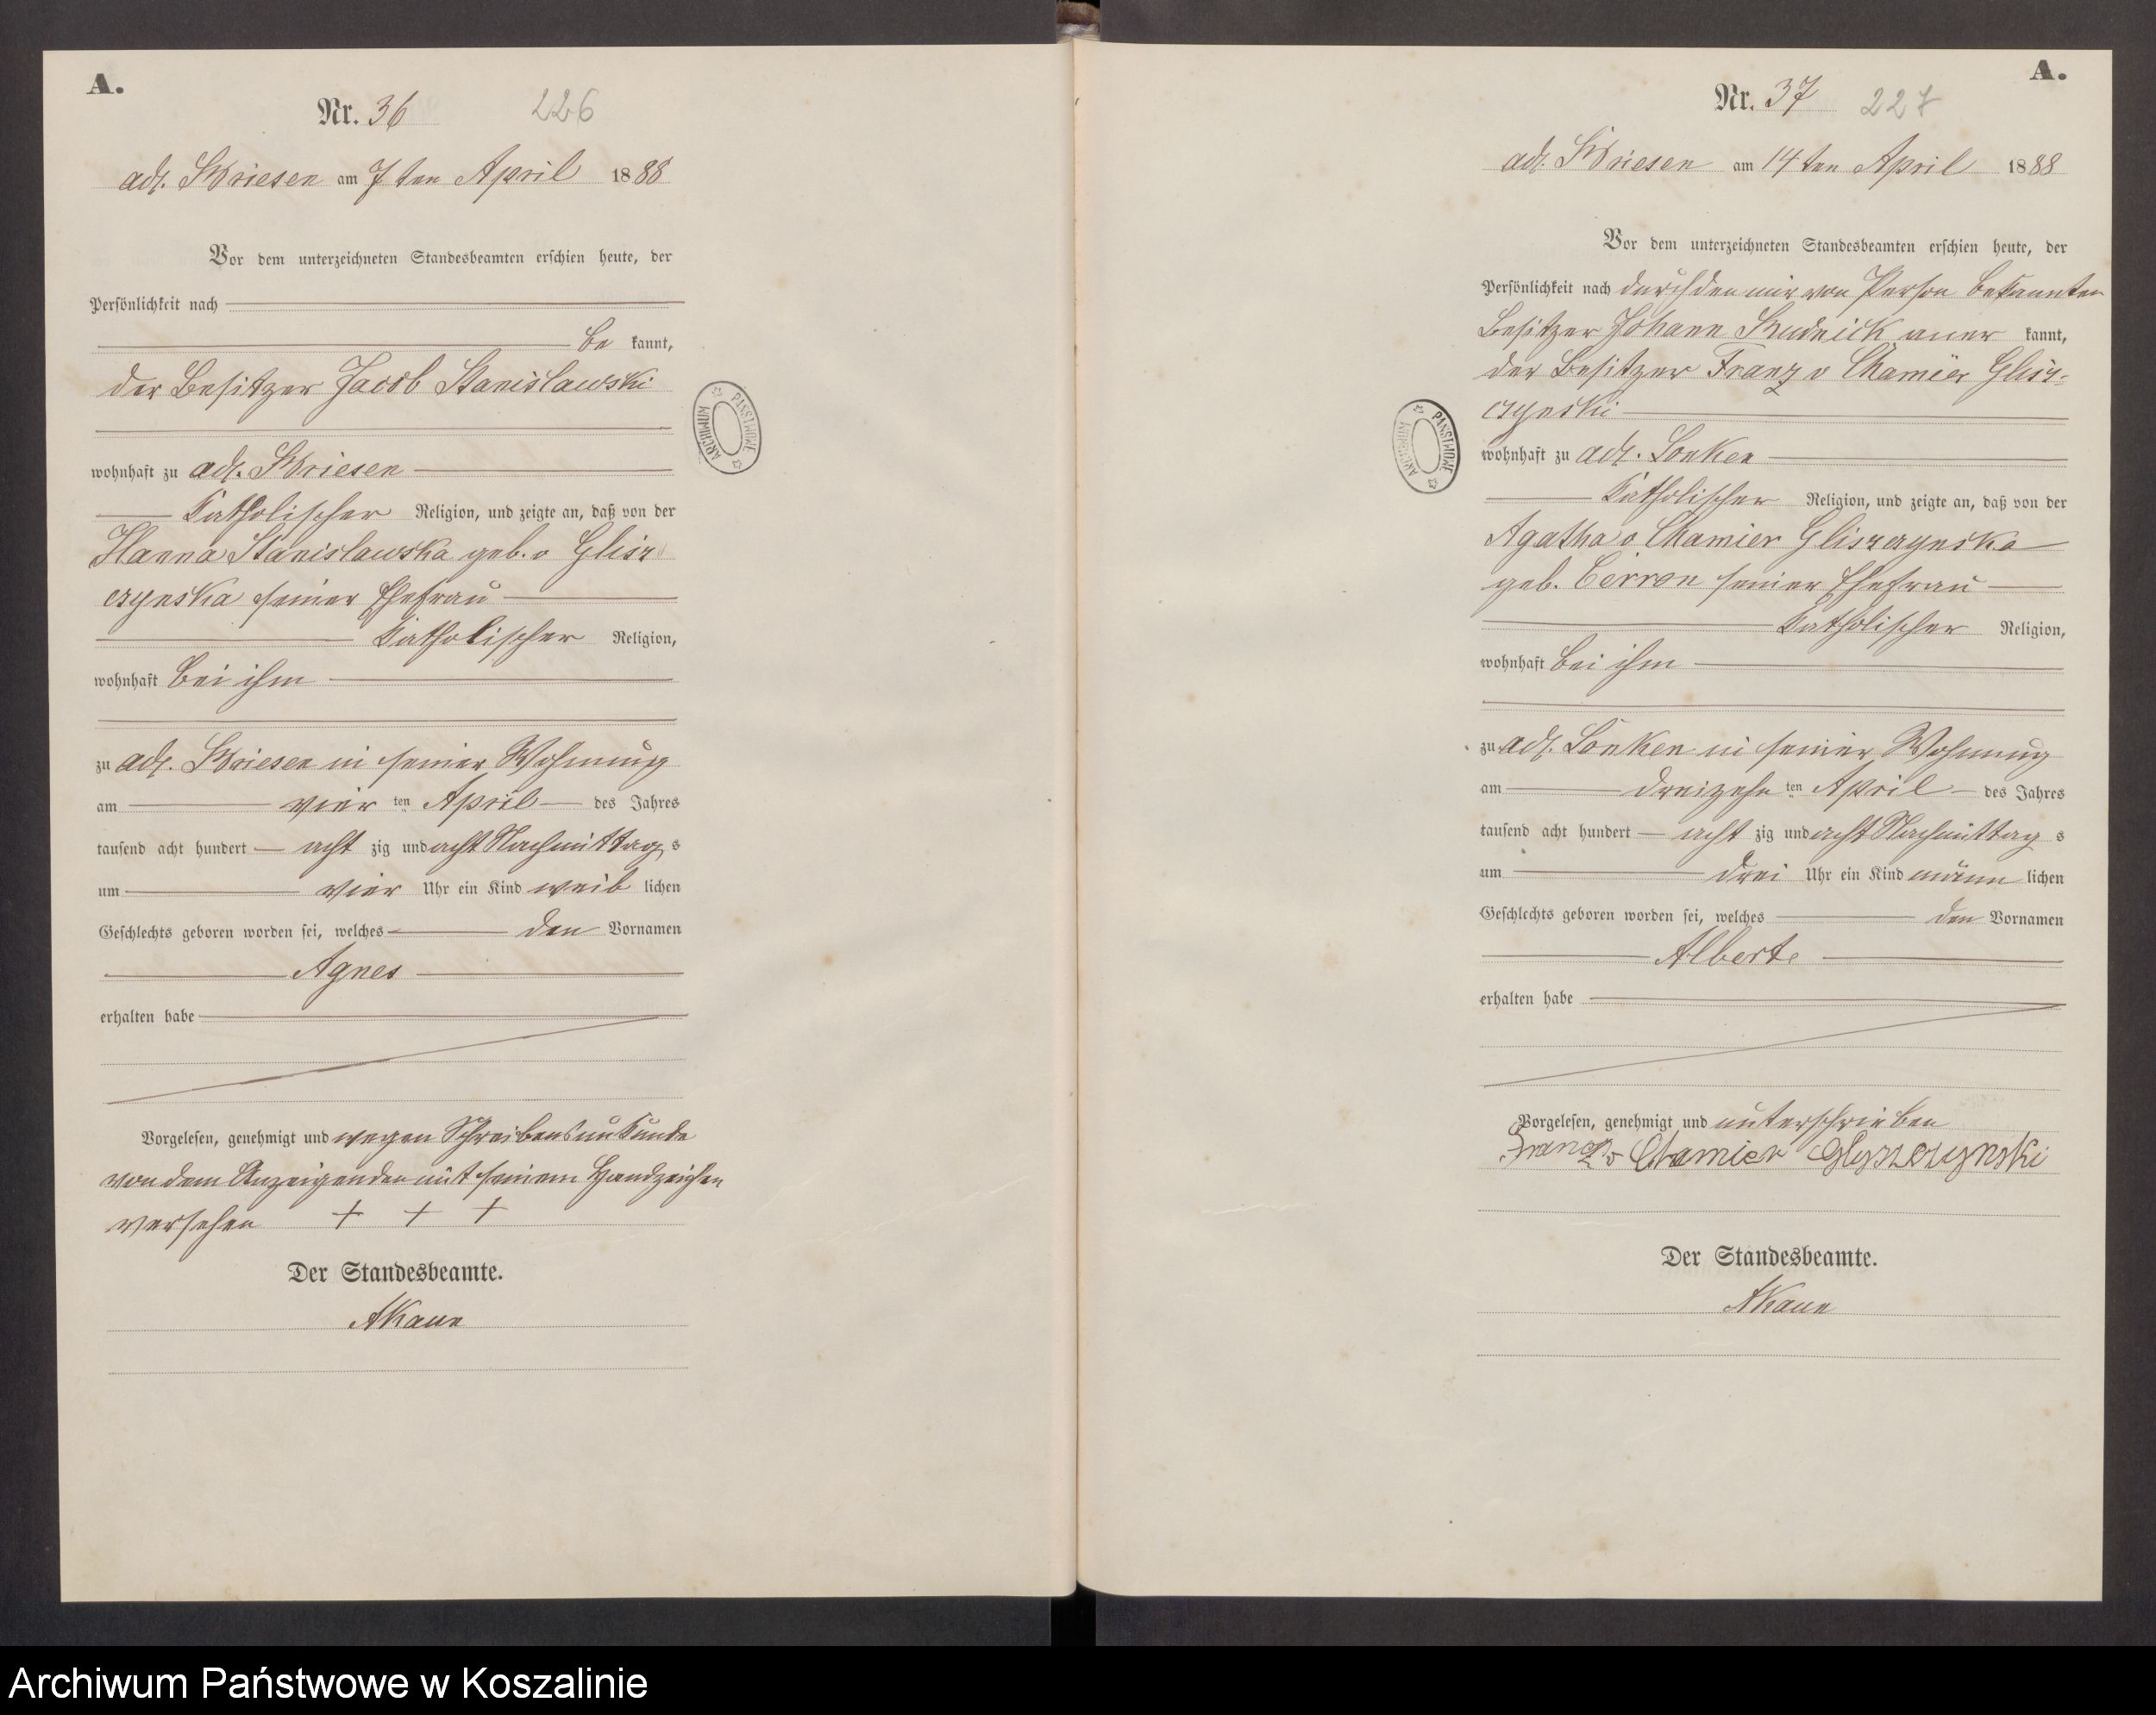 A.
Nr. 36 226
adl. Briesen am 7ten April 1888
Vor dem unterzeichneten Standesbeamten erschien heute, der
Persönlichkeit nach
be kannt,
der Besitzer Jacob Stanislawski
wohnhaft zu adl. Briesen
katholischer Religion, und zeigte an, daß von der
Hanna Stanislawska geb. v Glisz
czynska seiner Ehefrau
katholischer Religion,
wohnhaft bei ihm
zu adl. Briesen in seiner Wohnung
am vier ten April des Jahres
tausend acht hundert acht zig und acht Nachmittag s
um vier Uhr ein Kind weib lichen
Geschlechts geboren worden sei, welches den Vornamen
Agnes
erhalten habe
Vorgelesen, genehmigt und wegen Schreibensunkunde
von dem Anzeigenden mit seinem Handzeichen
versehen + + +
Der Standesbeamte.
AKaun
ARCHIWUM PAŃSTWOWE
A.
Nr. 37 227
adl. Briesen am 14ten April 1888
Vor dem unterzeichneten Standesbeamten erschien heute, der
Persönlichkeit nach durch den mir von Person bekannten
Besitzer Johann Rudnick aner kannt,
der Besitzer Franz v Chamier Glisz-
czynski
wohnhaft zu adl. Lonken
katholischer Religion, und zeigte an, daß von der
Agatha v Chamier Gliszczynska
geb. Cerron seiner Ehefrau
katholischer Religion,
wohnhaft bei ihm
zu adl. Lonken in seiner Wohnung
am dreizehn ten April des Jahres
tausend acht hundert acht zig und acht Nachmittag s
um drei Uhr ein Kind männ lichen
Geschlechts geboren worden sei, welches den Vornamen
Albert
erhalten habe
Vorgelesen, genehmigt und unterschrieben
Franz v Chamier Glyszczynski
Der Standesbeamte.
AKaun
ARCHIWUM PAŃSTWOWE
Archiwum Państwowe w Koszalinie